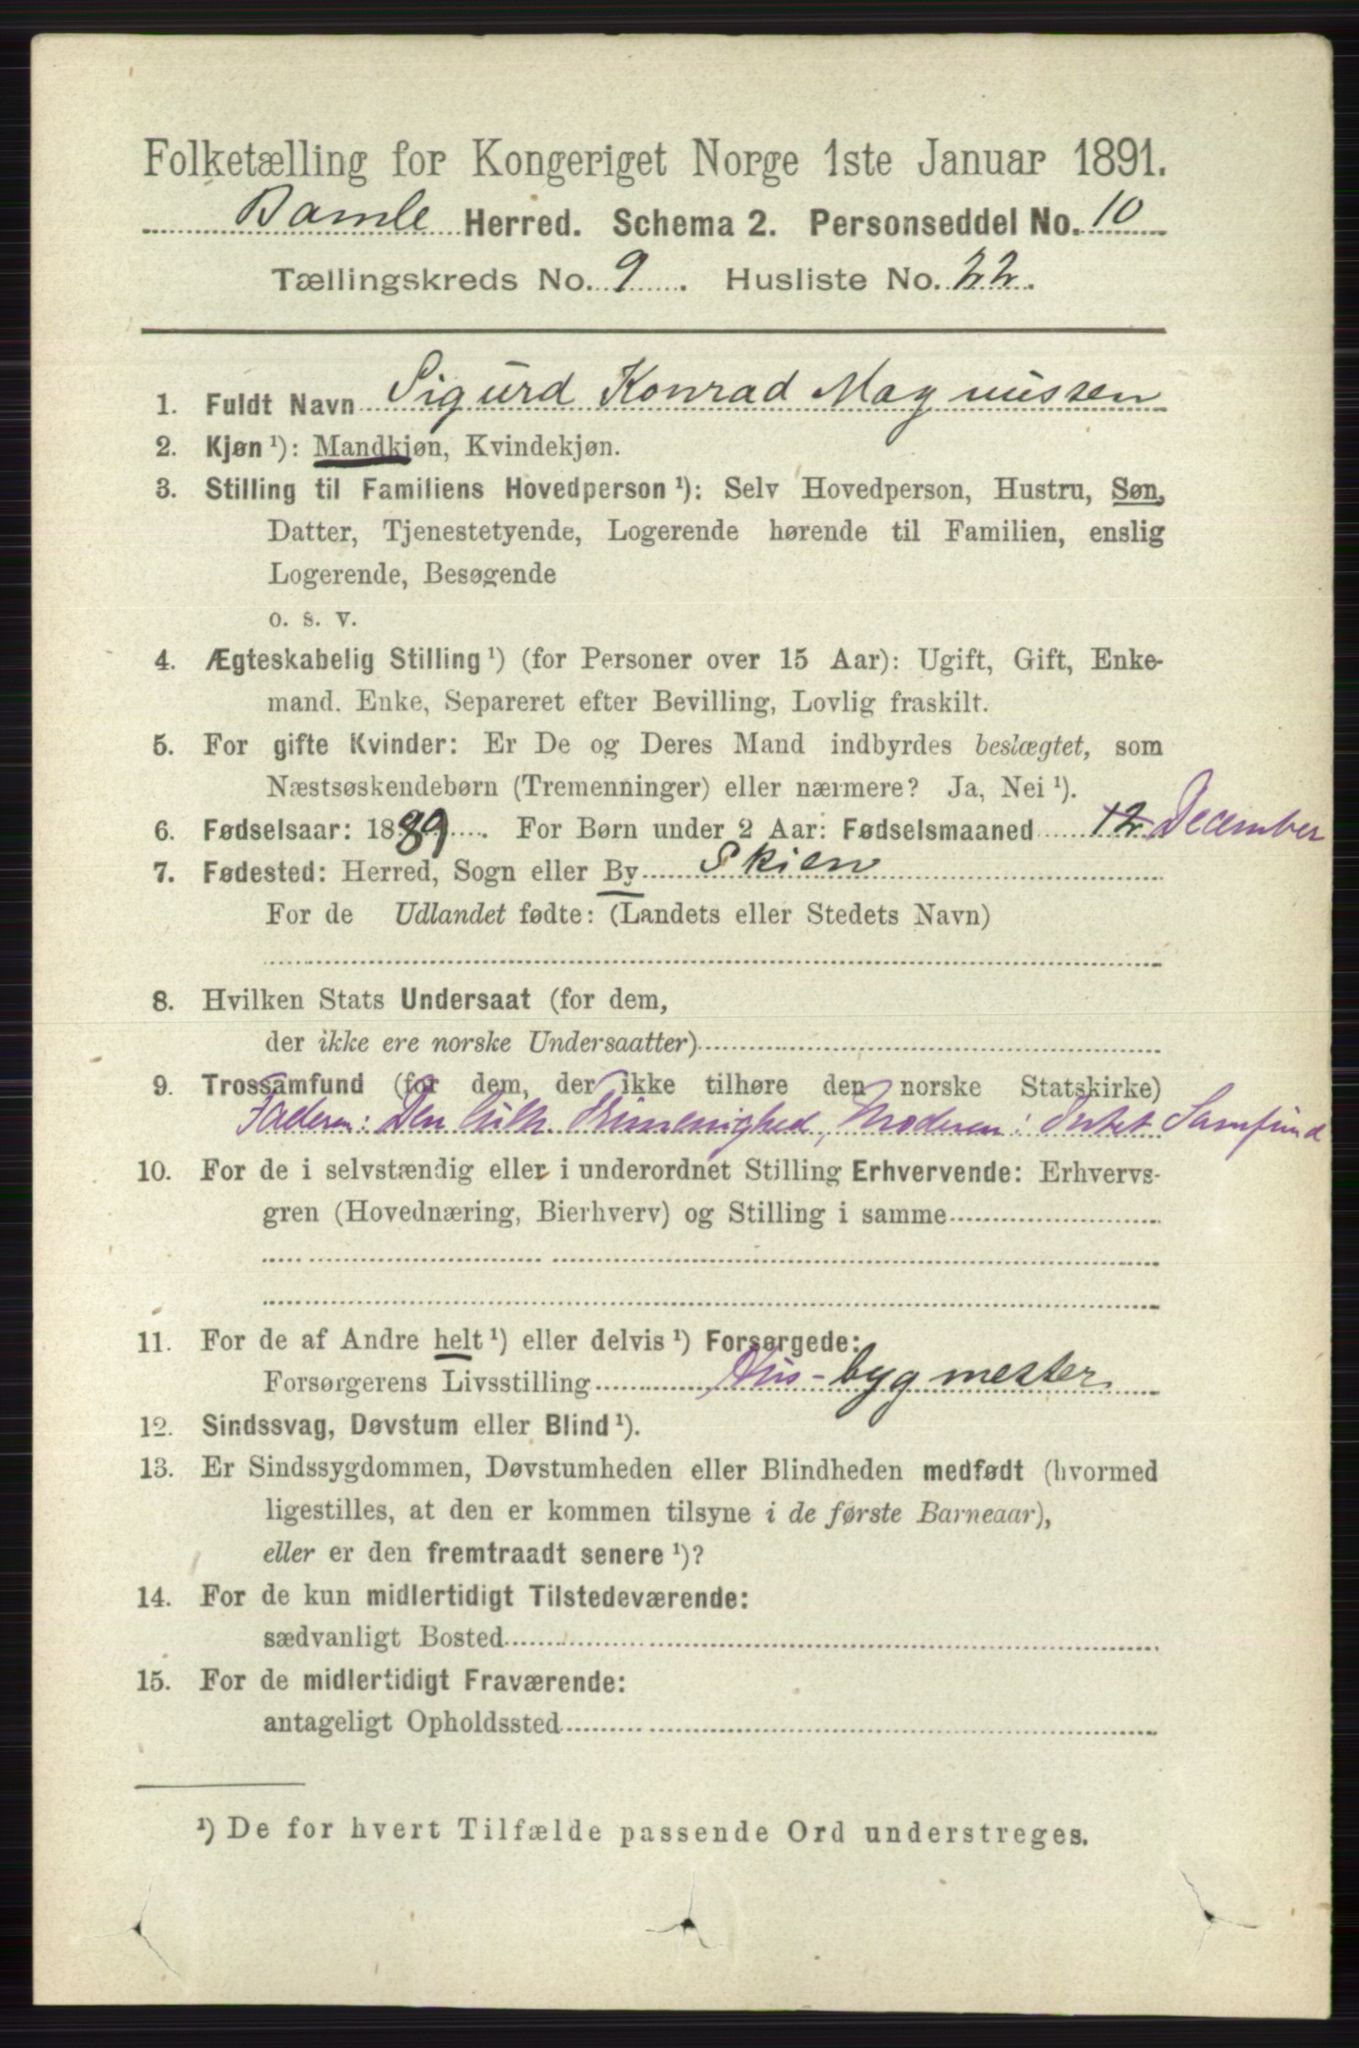 Folketælling for Kongeriget Norge 1ste Januar 1891.
Bamle Herred. Schema 2. Personseddel No. 10
Tællingskreds No. 9. Husliste No. 22.
1. Fuldt Navn Sigurd Konrad Magnussen
2. Kjøn ¹): Mandkjøn, Kvindekjøn.
3. Stilling til Familiens Hovedperson ¹): Selv Hovedperson, Hustru, Søn,
Datter, Tjenestetyende, Logerende hørende til Familien, enslig
Logerende, Besøgende
o. s. v.
4. Ægteskabelig Stilling ¹) (for Personer over 15 Aar): Ugift, Gift, Enke-
mand. Enke, Separeret efter Bevilling, Lovlig fraskilt.
5. For gifte Kvinder: Er De og Deres Mand indbyrdes beslægtet, som
Næstsøskendebørn (Tremenninger) eller nærmere? Ja, Nei ¹).
6. Fødselsaar: 1889. For Børn under 2 Aar: Fødselsmaaned 12 December
7. Fødested: Herred, Sogn eller By Skien
For de Udlandet fødte: (Landets eller Stedets Navn)
8. Hvilken Stats Undersaat (for dem,
der ikke ere norske Undersaatter)
9. Trossamfund (for dem, der ikke tilhøre den norske Statskirke)
Faderen: Den luth. Frimenighed, Moderen: Intet Samfund
10. For de i selvstændig eller i underordnet Stilling Erhvervende: Erhvervs-
gren (Hovednæring, Bierhverv) og Stilling i samme
11. For de af Andre helt ¹) eller delvis ¹) Forsørgede:
Forsørgerens Livsstilling Hus-bygmester
12. Sindssvag, Døvstum eller Blind ¹).
13. Er Sindssygdommen, Døvstumheden eller Blindheden medfødt (hvormed
ligestilles, at den er kommen tilsyne i de første Barneaar),
eller er den fremtraadt senere ¹)?
14. For de kun midlertidigt Tilstedeværende:
sædvanligt Bosted
15. For de midlertidigt Fraværende:
antageligt Opholdssted
¹) De for hvert Tilfælde passende Ord understreges.